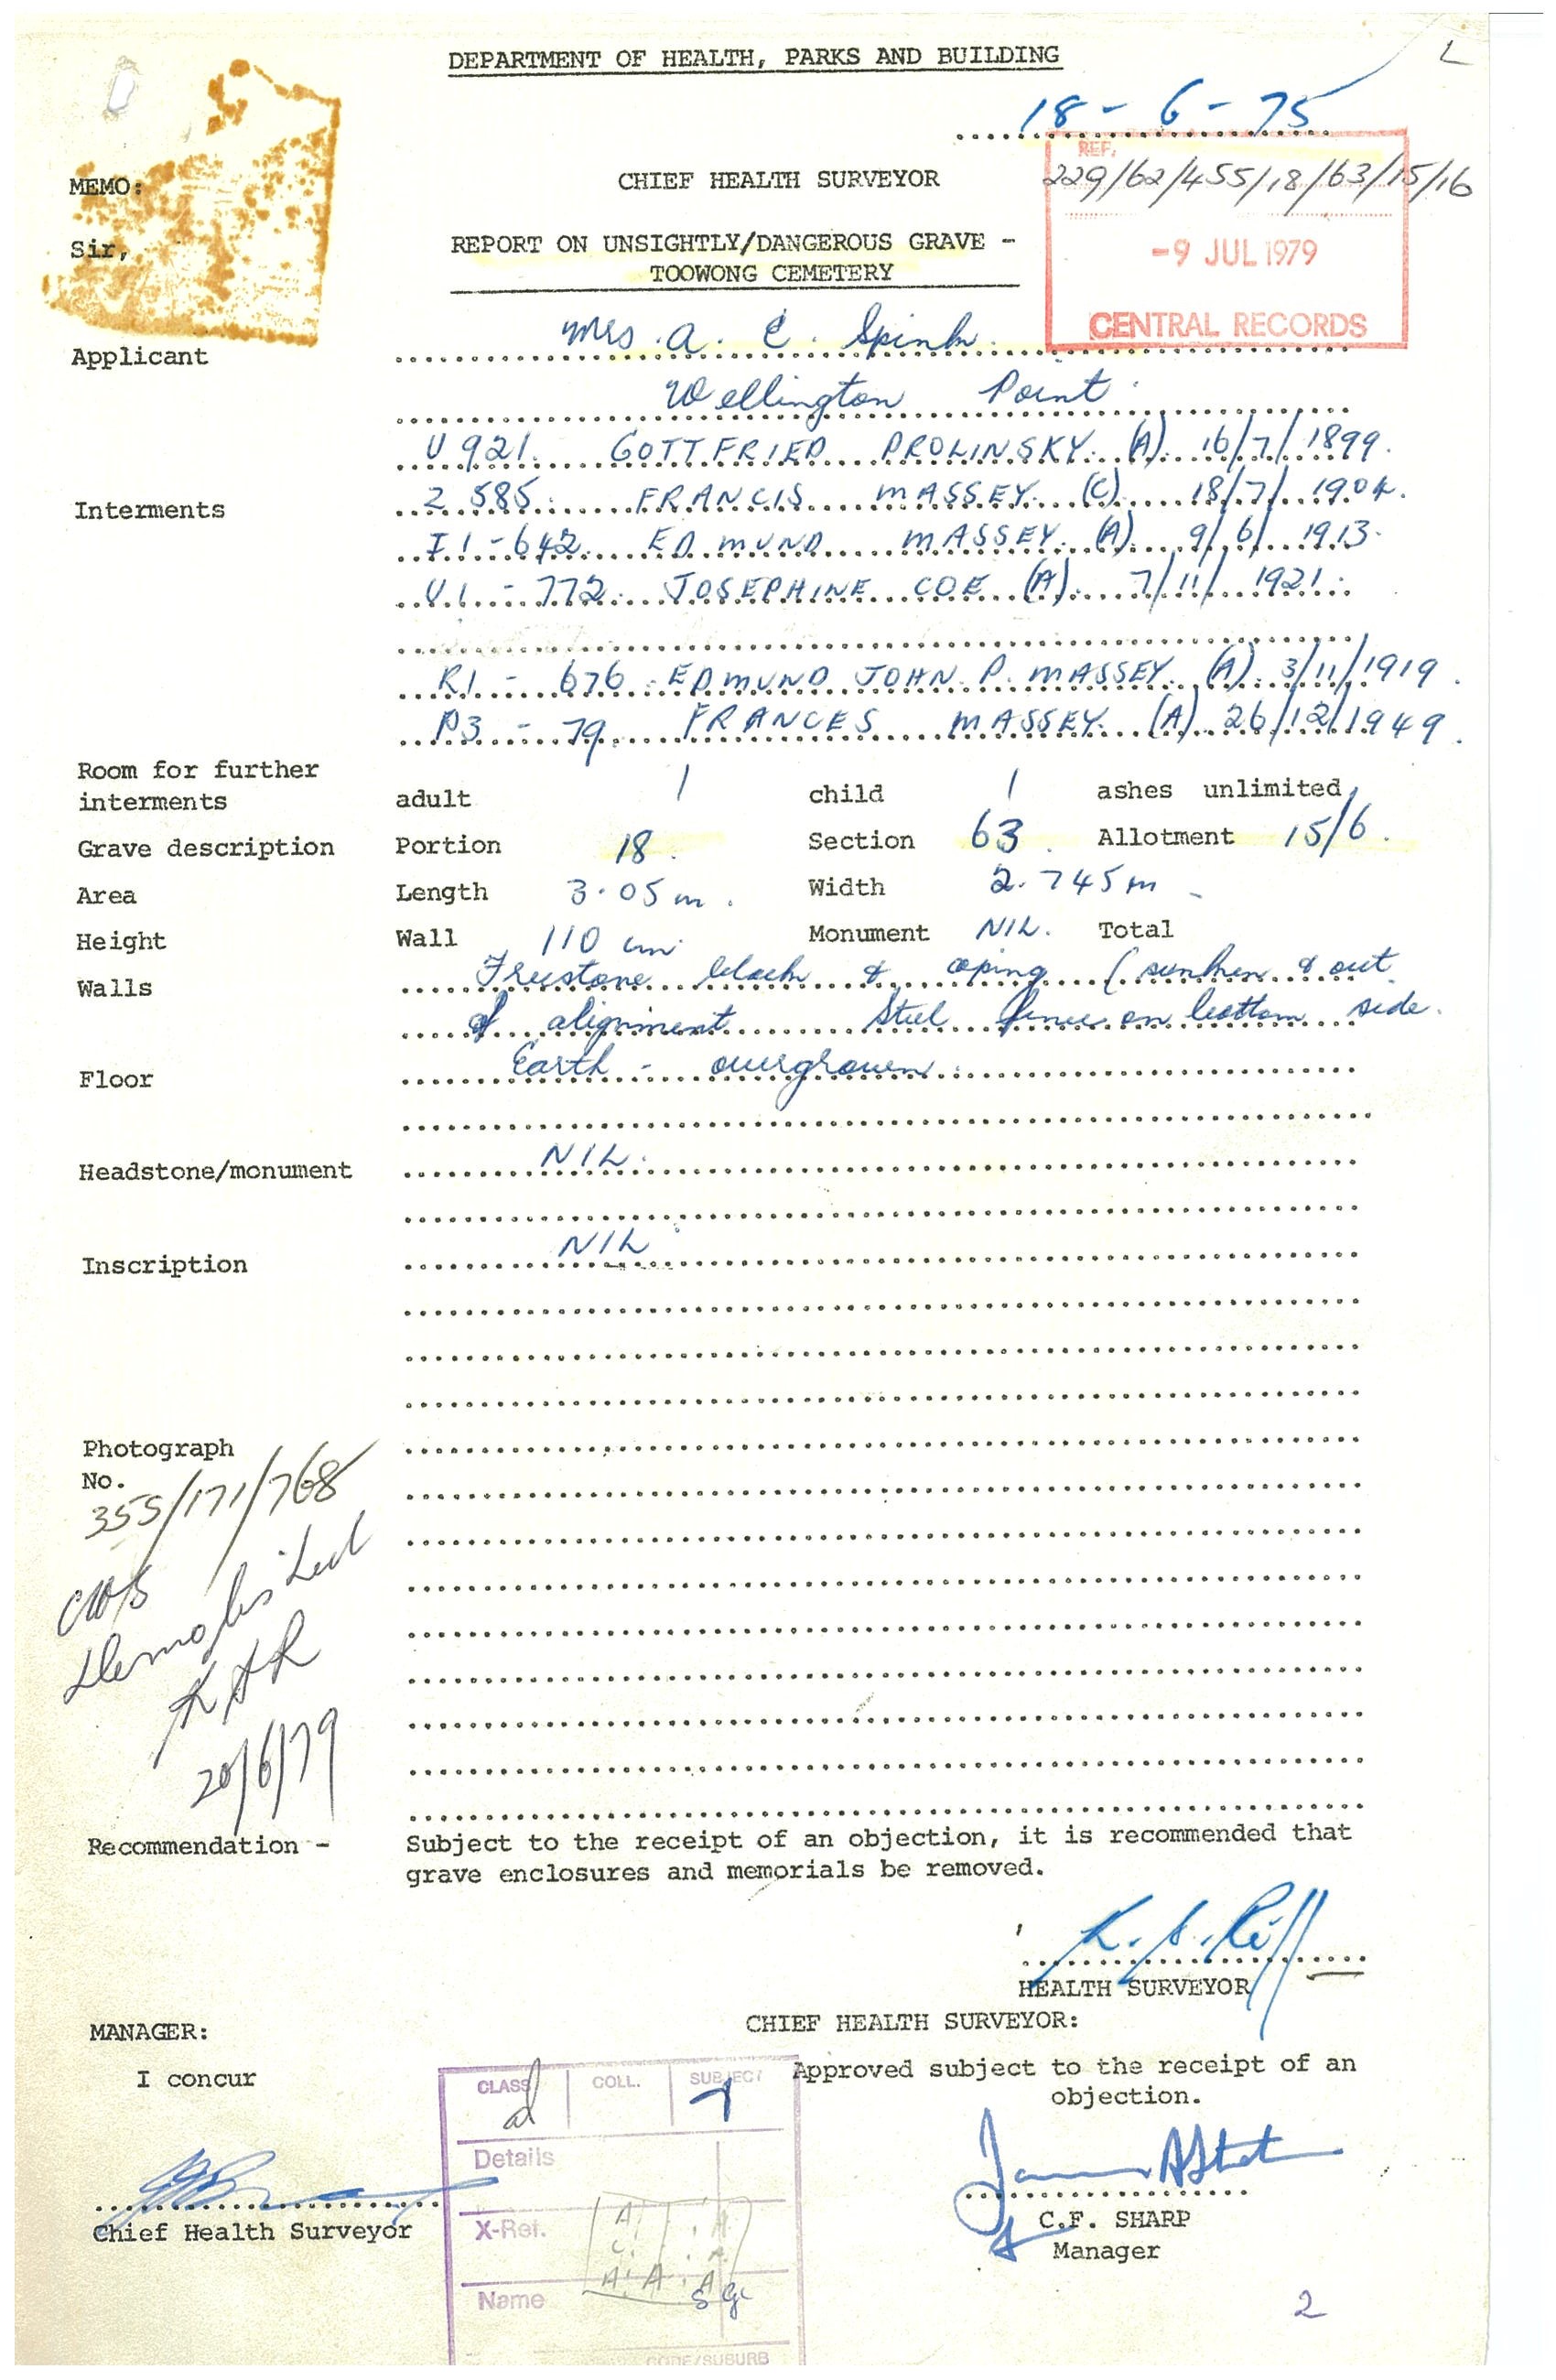 L
DEPARTMENT OF HEALTH, PARKS AND BUILDING
18 - 6 - 75
REF.
MEMO: CHIEF HEALTH SURVEYOR 229/62/455/18/63/15/16
Sir, REPORT ON UNSIGHTLY/DANGEROUS GRAVE - -9 JUL 1979
TOOWONG CEMETERY
CENTRAL RECORDS
Applicant Mrs. A. E. Spink.
Wellington Point.
U 921. GOTTFRIED PROLINSKY. (A). 16/7/1899.
Interments 2 585. FRANCIS MASSEY. (C). 18/7/1904.
I1-642. EDMUND MASSEY. (A). 9/6/1913.
U.1 - 772. JOSEPHINE COE (A). 7/11/1921.
R1 - 676. EDMUND JOHN P. MASSEY. (A). 3/11/1919.
P3 - 79 FRANCES MASSEY. (A) 26/12/1949.
Room for further
interments adult 1 child 1 ashes unlimited
Grave description Portion 18. Section 63. Allotment 15/6.
Area Length 3.05 m. Width 2.745 m
Height Wall 110 cm. Monument NIL. Total
Walls Freestone block & coping (sunken & out
of alignment Steel fence on bottom side.
Floor Earth - overgrown.
Headstone/monument NIL.
Inscription NIL
Photograph
No.
355/171/768
Demolished
KAR
20/6/79
Recommendation - Subject to the receipt of an objection, it is recommended that
grave enclosures and memorials be removed.
HEALTH SURVEYOR
MANAGER: CHIEF HEALTH SURVEYOR:
I concur Approved subject to the receipt of an
objection.
CLASS COLL. SUBJECT
Details
X-Ref.
Name
CODE/SUBURB
Chief Health Surveyor C.F. SHARP
Manager
2